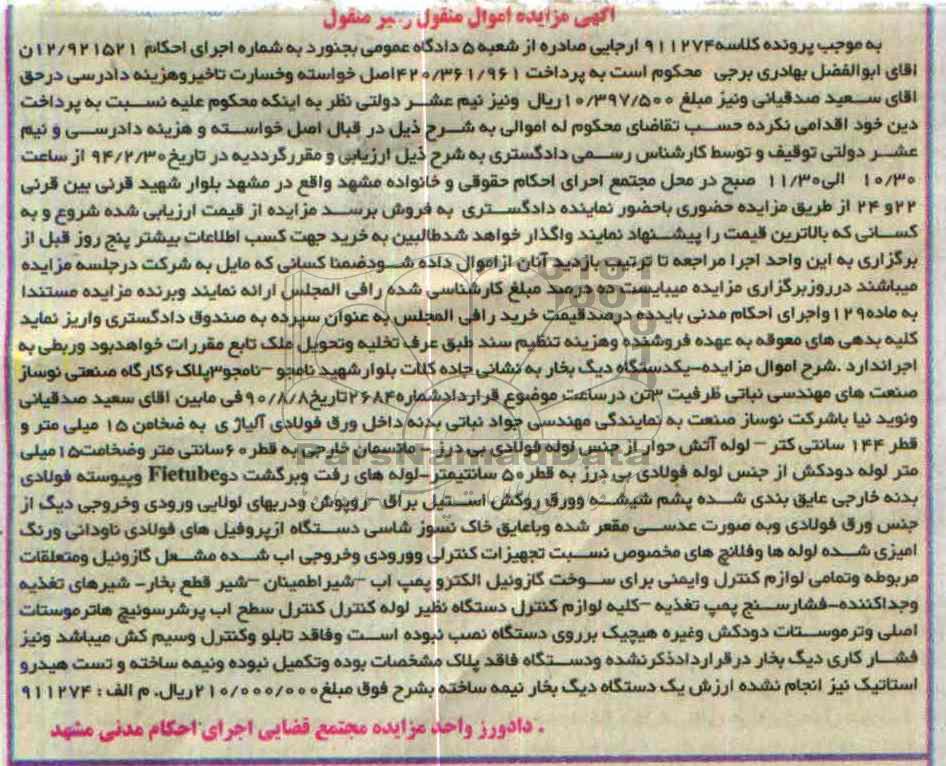 آگهی مزایده اموال منقول منقول
به موجب پرونده کلاسه۹۱۱۲۷۴ ارجایی صادره از شعبه ۵ دادگاه عمومی بجنورد به شماره اجرای احکام ۱۲/۹۲۱۵۲۱ن
اقای ابوالفضل بهادری برجی محکوم است به پرداخت ۴۲۰/۳۶۱/۹۶۱اصل خواسته وخسارت تاخیروهزینه دادرسی درحق
اقای سعید صدقیانی ونیز مبلغ ۱۰/۳۹۷/۵۰۰ریال ونیز نیم عشر دولتی نظر به اینکه محکوم علیه نسبت به پرداخت
دین خود اقدامی نکرده حسب تقاضای محکوم له اموالی به شرح ذیل در قبال اصل خواسته و هزینه دادرسی و نیم
عشر دولتی توقیف و توسط کارشناس رسمی دادگستری به شرح ذیل ارزیابی و مقررگردیده در تاریخ۹۴/۲/۳۰ از ساعت
۱۰/۳۰ الی۱۱/۳۰ صبح در محل مجتمع اجرای احکام حقوقی و خانواده مشهد واقع در مشهد بلوار شهید قرنی بین قرنی
۲۲و ۲۴ از طریق مزایده حضوری باحضور نماینده دادگستری به فروش برسد مزایده از قیمت ارزیابی شده شروع و به
کسانی که بالاترین قیمت را پیشنهاد نمایند واگذار خواهد شدطالبین به خرید جهت کسب اطلاعات بیشتر پنج روز قبل از
برگزاری به این واحد اجرا مراجعه تا ترتیب بازدید آنان ازاموال داده شودضمنا کسانی که مایل به شرکت درجلسه مزایده
میباشند درروزبرگزاری مزایده میبایست ده درصد مبلغ کارشناسی شده رافی المجلس ارائه نمایند وبرنده مزایده مستندا
به ماده۱۲۹واجرای احکام مدنی بایدده درصدقیمت خرید رافی المجلس به عنوان سپرده به صندوق دادگستری واریز نماید
کلیه بدهی های معوقه به عهده فروشنده وهزینه تنظیم سند طبق عرف تخلیه وتحویل ملک تابع مقررات خواهدبود وربطی به
اجراندارد .شرح اموال مزایده-یکدستگاه دیگ بخار به نشانی جاده کلات بلوارشهید نامجو -نامجو۳پلاک۶کارگاه صنعتی نوساز
صنعت های مهندسی نباتی ظرفیت ۳تن درساعت موضوع قراردادشماره۲۶۸۴تاریخ۹۰/۸/۸فی مابین اقای سعید صدقیانی
ونوید نیا باشرکت نوساز صنعت به نمایندگی مهندسی جواد نباتی بدنه داخل ورق فولادی آلیاژی به ضخامن ۱۵ میلی متر و
قطر ۱۴۴ سانتی کتر – لوله آتش خوار از جنس لوله فولادی بی درز – مانسمان خارجی به قطر۶۰سانتی متر وضخامت۱۵میلی
متر لوله دودکش از جنس لوله فولادی بی درز به قطر۵۰ سانتیمتر-لوله های رفت وبرگشت دوFietube وپیوسته فولادی
بدنه خارجی عایق بندی شده پشم شیشه وورق روکش استیل براق –روپوش ودربهای لولایی ورودی وخروجی دیگ از
جنس ورق فولادی وبه صورت عدسی مقعر شده وباعایق خاک نسوز شاسی دستگاه ازپروفیل های فولادی ناودانی ورنگ
امیزی شده لوله ها وفلانچ های مخصوص نسبت تجهیزات کنترلی وورودی وخروجی اب شده مشعل گازوئیل ومتعلقات
مربوطه وتمامی لوازم کنترل وایمنی برای سوخت گازوئیل الکترو پمپ اب –شیراطمینان –شیر قطع بخار- شیرهای تغذیه
وجداکننده-فشارسنج پمپ تغذیه –کلیه لوازم کنترل دستگاه نظیر لوله کنترل کنترل سطح اب پرشرسوئیچ هاترموستات
اصلی وترموستات دودکش وغیره هیچیک برروی دستگاه نصب نبوده است وفاقد تابلو وکنترل وسیم کش میباشد ونیز
فشار کاری دیگ بخار درقراردادذکرنشده ودستگاه فاقد پلاک مشخصات بوده وتکمیل نبوده ونیمه ساخته و تست هیدرو
استاتیک نیز انجام نشده ارزش یک دستگاه دیگ بخار نیمه ساخته بشرح فوق مبلغ۲۱۰/۰۰۰/۰۰۰ریال. م الف : ۹۱۱۲۷۴
. دادورز واحد مزایده مجتمع قضایی اجرای احکام مدنی مشهد
ParsNamadData